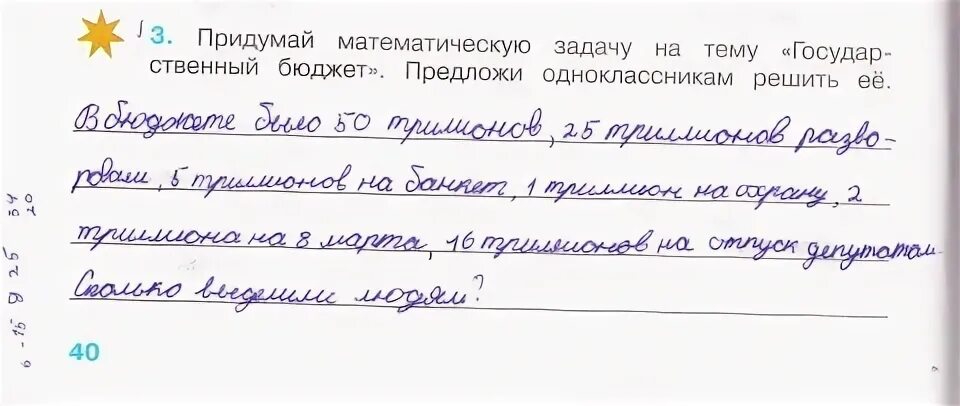 3. Придумай математическую задачу на тему «Государ-
ственный бюджет». Предложи одноклассникам решить её.
В бюджете было 50 трилионов, 25 триллионов разво-
ровали, 5 триллионов на банкет, 1 триллион на охрану, 2
триллиона на 8 марта, 16 триллионов на отпуск депутатам.
Сколько выделили людям?
40
54
20
25
9
-15
6